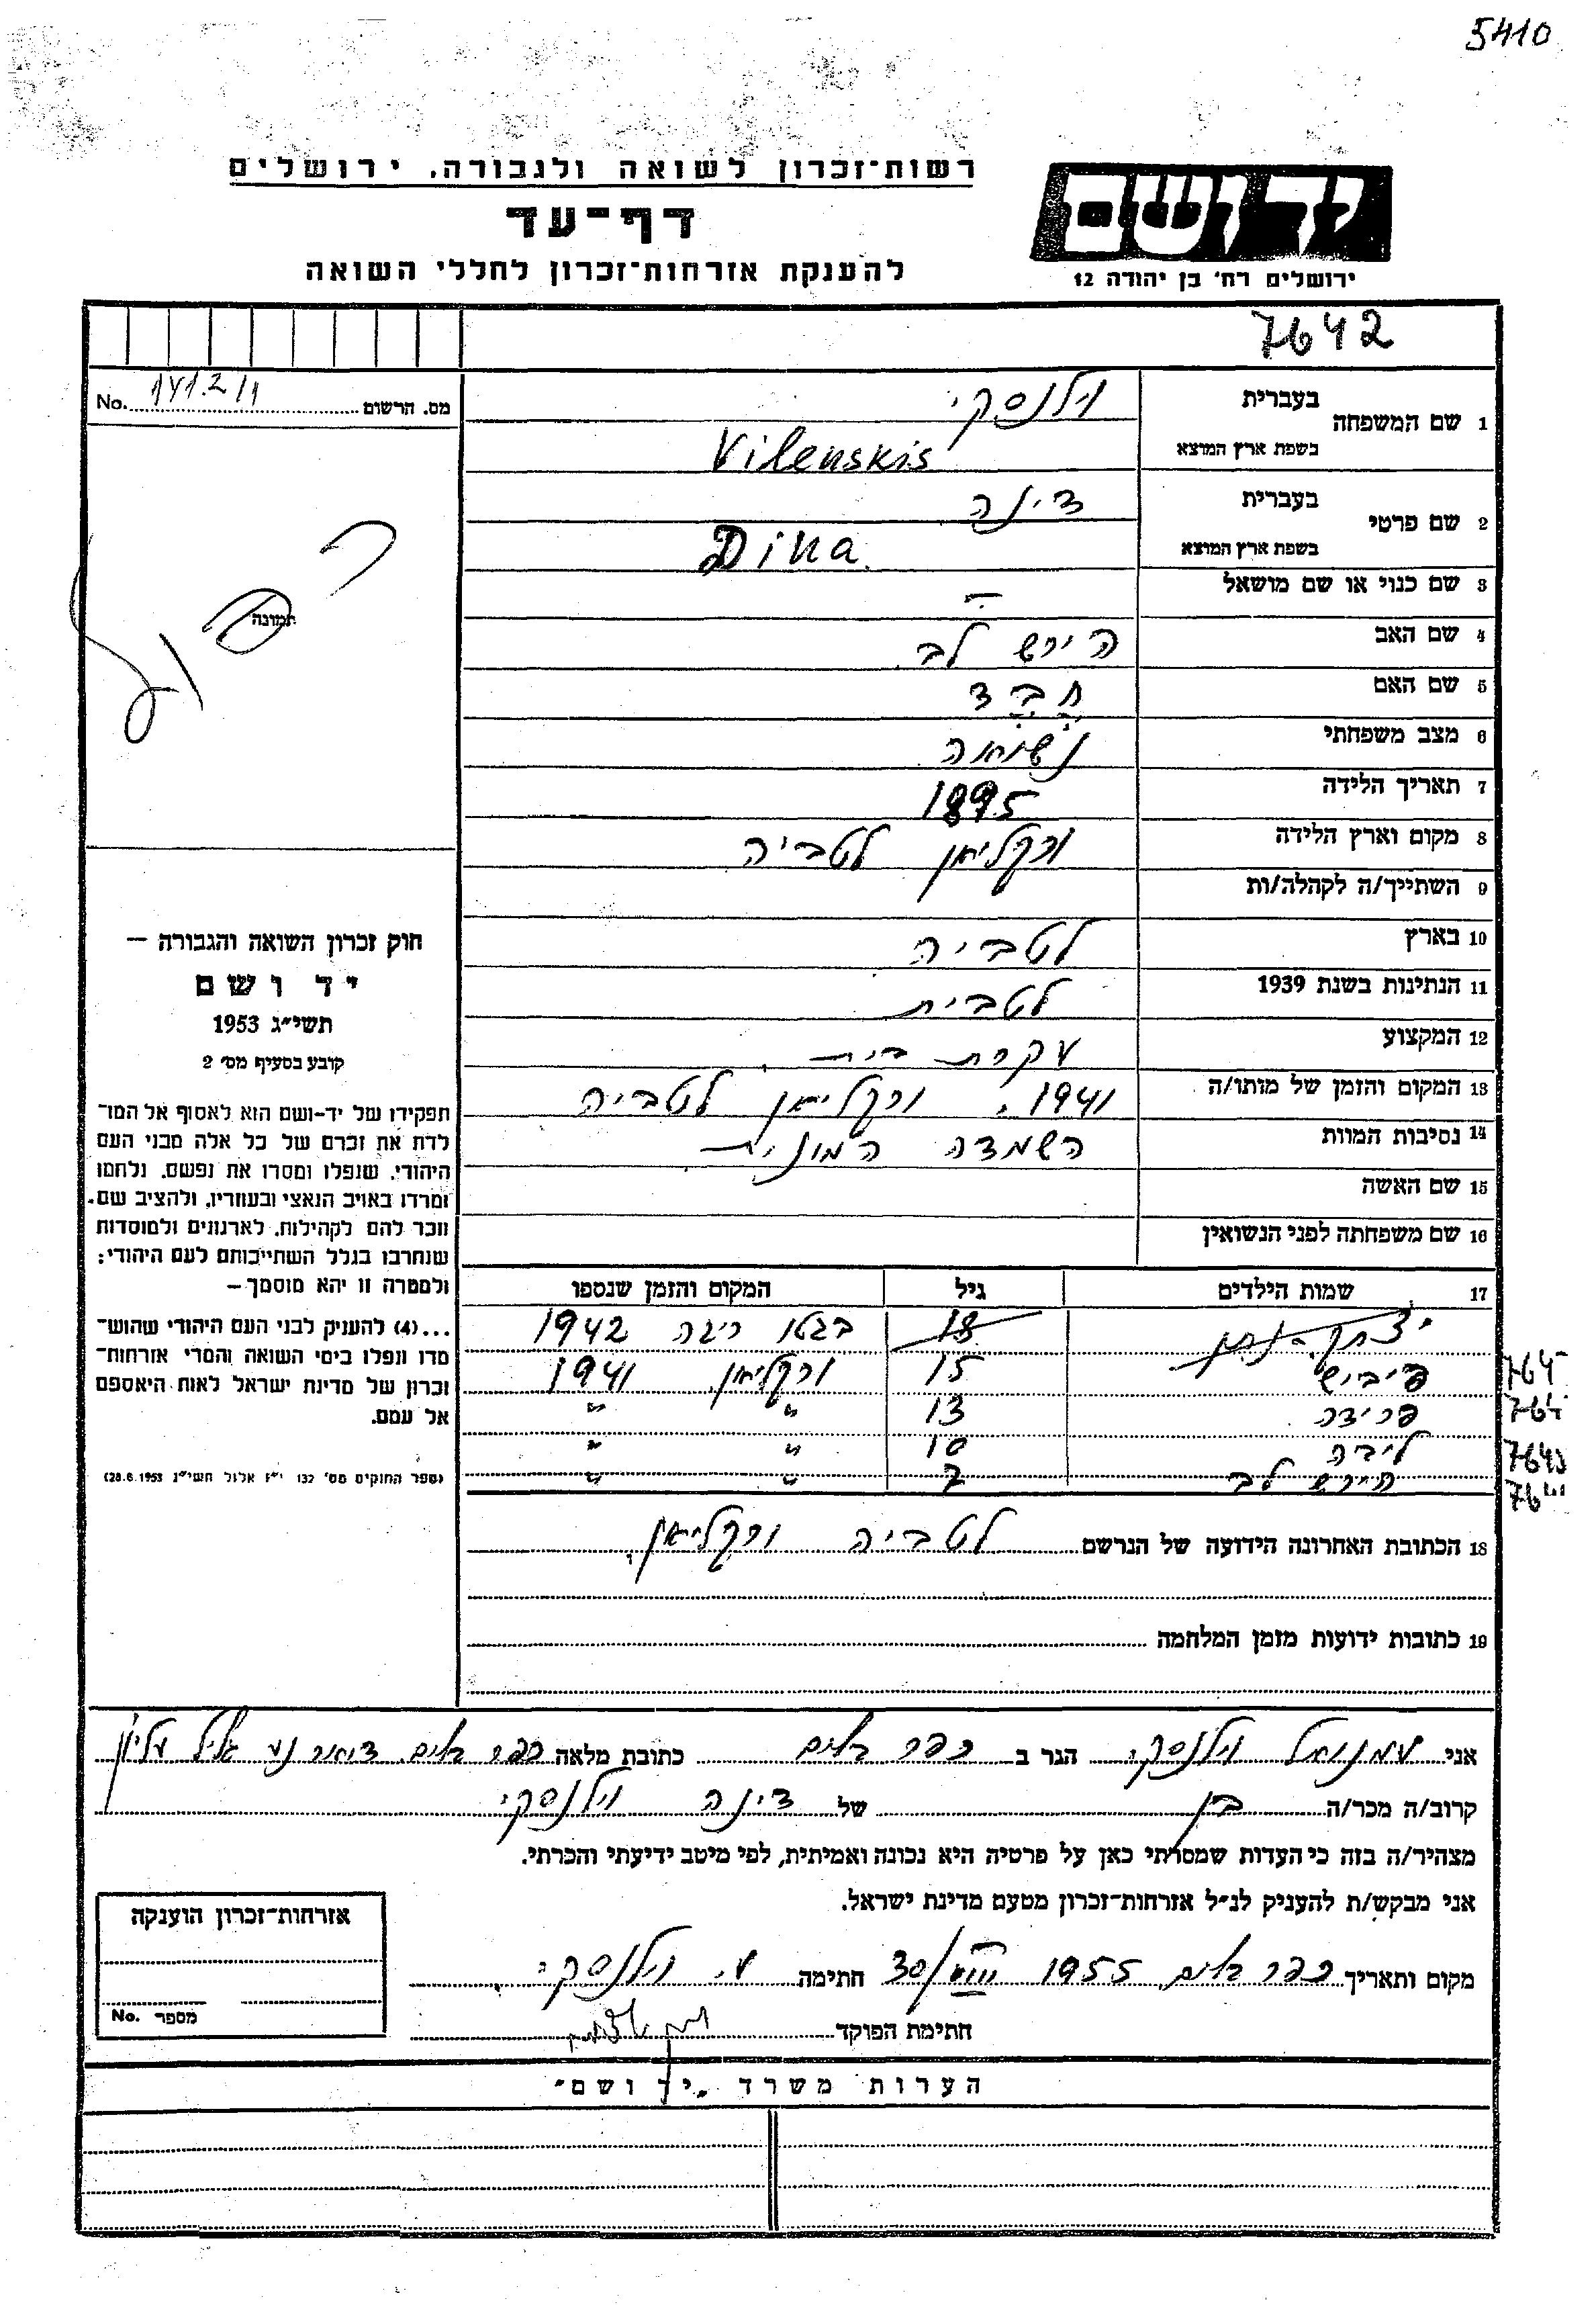 5410
רשות־זכרון לשואה ולגבורה, ירושלים
דף־עד
להענקת אזרחות־זכרון לחללי השואה
יד ושם
ירושלים רח׳ בן יהודה 12
7642
מס. הרשום No.
1 שם המשפחה בעברית וילנסקי
בשפת ארץ המוצא Vilenskis
2 שם פרטי בעברית דינה
בשפת ארץ המוצא Dina
3 שם כנוי או שם מושאל —
4 שם האב הירש לב
5 שם האם
6 מצב משפחתי נשואה
7 תאריך הלידה 1895
8 מקום וארץ הלידה ורקליאן לטביה
9 השתייך/ה לקהלה/ות
10 בארץ לטביה
11 הנתינות בשנת 1939 לטבית
12 המקצוע עקרת בית
13 המקום והזמן של מותו/ה 1941, ורקליאן לטביה
14 נסיבות המוות השמדה המונית
15 שם האשה
16 שם משפחתה לפני הנשואין
17 שמות הילדים גיל המקום והזמן שנספו
יצחק-נתן 18 בגטו ריגה 1942
פייביש 15 ורקליאן 1941
פרידה 13 " "
ליבה 10 " "
הירש לב 7 " "
18 הכתובת האחרונה הידועה של הנרשם לטביה ורקליאן
19 כתובות ידועות מזמן המלחמה
כפול
תמונה
חוק זכרון השואה והגבורה —
יד ושם
תשי״ג 1953
קובע בסעיף מס׳ 2
תפקידו של יד־ושם הוא לאסוף אל המו־
לדת את זכרם של כל אלה מבני העם
היהודי, שנפלו ומסרו את נפשם, נלחמו
ומרדו באויב הנאצי ובעוזריו, ולהציב שם
וזכר להם לקהילות, לארגונים ולמוסדות
שנחרבו בגלל השתייכותם לעם היהודי;
ולמטרה זו יהא מוסמך —
...(4) להעניק לבני העם היהודי שהוש־
מדו ונפלו בימי השואה והמרי אזרחות־
זכרון של מדינת ישראל לאות היאספם
אל עמם.
(ספר החוקים מס׳ 132 י״ז אלול תשי״ג 28.8.1953)
אני עמנואל וילנסקי הגר ב כפר בלום כתובת מלאה כפר בלום דואר נע גליל עליון
קרוב/ה מכר/ה בן של דינה וילנסקי
מצהיר/ה בזה כי העדות שמסרתי כאן על פרטיה היא נכונה ואמיתית, לפי מיטב ידיעתי והכרתי.
אני מבקש/ת להעניק לנ״ל אזרחות־זכרון מטעם מדינת ישראל.
מקום ותאריך כפר בלום, 1955 30/VIII חתימה ע. וילנסקי
חתימת הפוקד
אזרחות־זכרון הוענקה
מספר No.
הערות משרד „יד ושם״